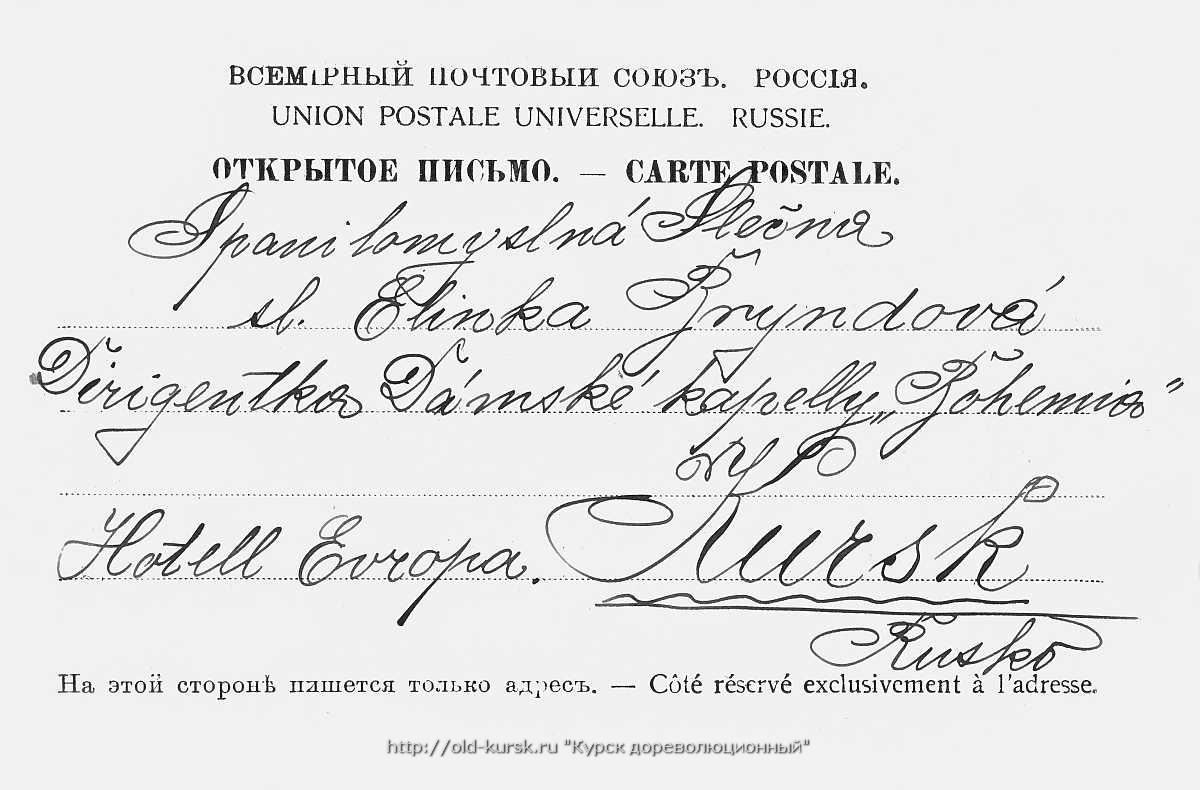 ВСЕМІРНЫЙ ПОЧТОВЫЙ СОЮЗЪ. РОССІЯ.
UNION POSTALE UNIVERSELLE. RUSSIE.
ОТКРЫТОЕ ПИСЬМО. — CARTE POSTALE.
Spanilomyslná Slečna
sl. Elinka Bryndová
Dirigentka Dámské kapelly „Bohemia"
v
Hotell Evropa. Kursk
Rusko
На этой сторонѣ пишется только адресъ. — Côté réservé exclusivement à l'adresse.
http://old-kursk.ru "Курск дореволюционный"